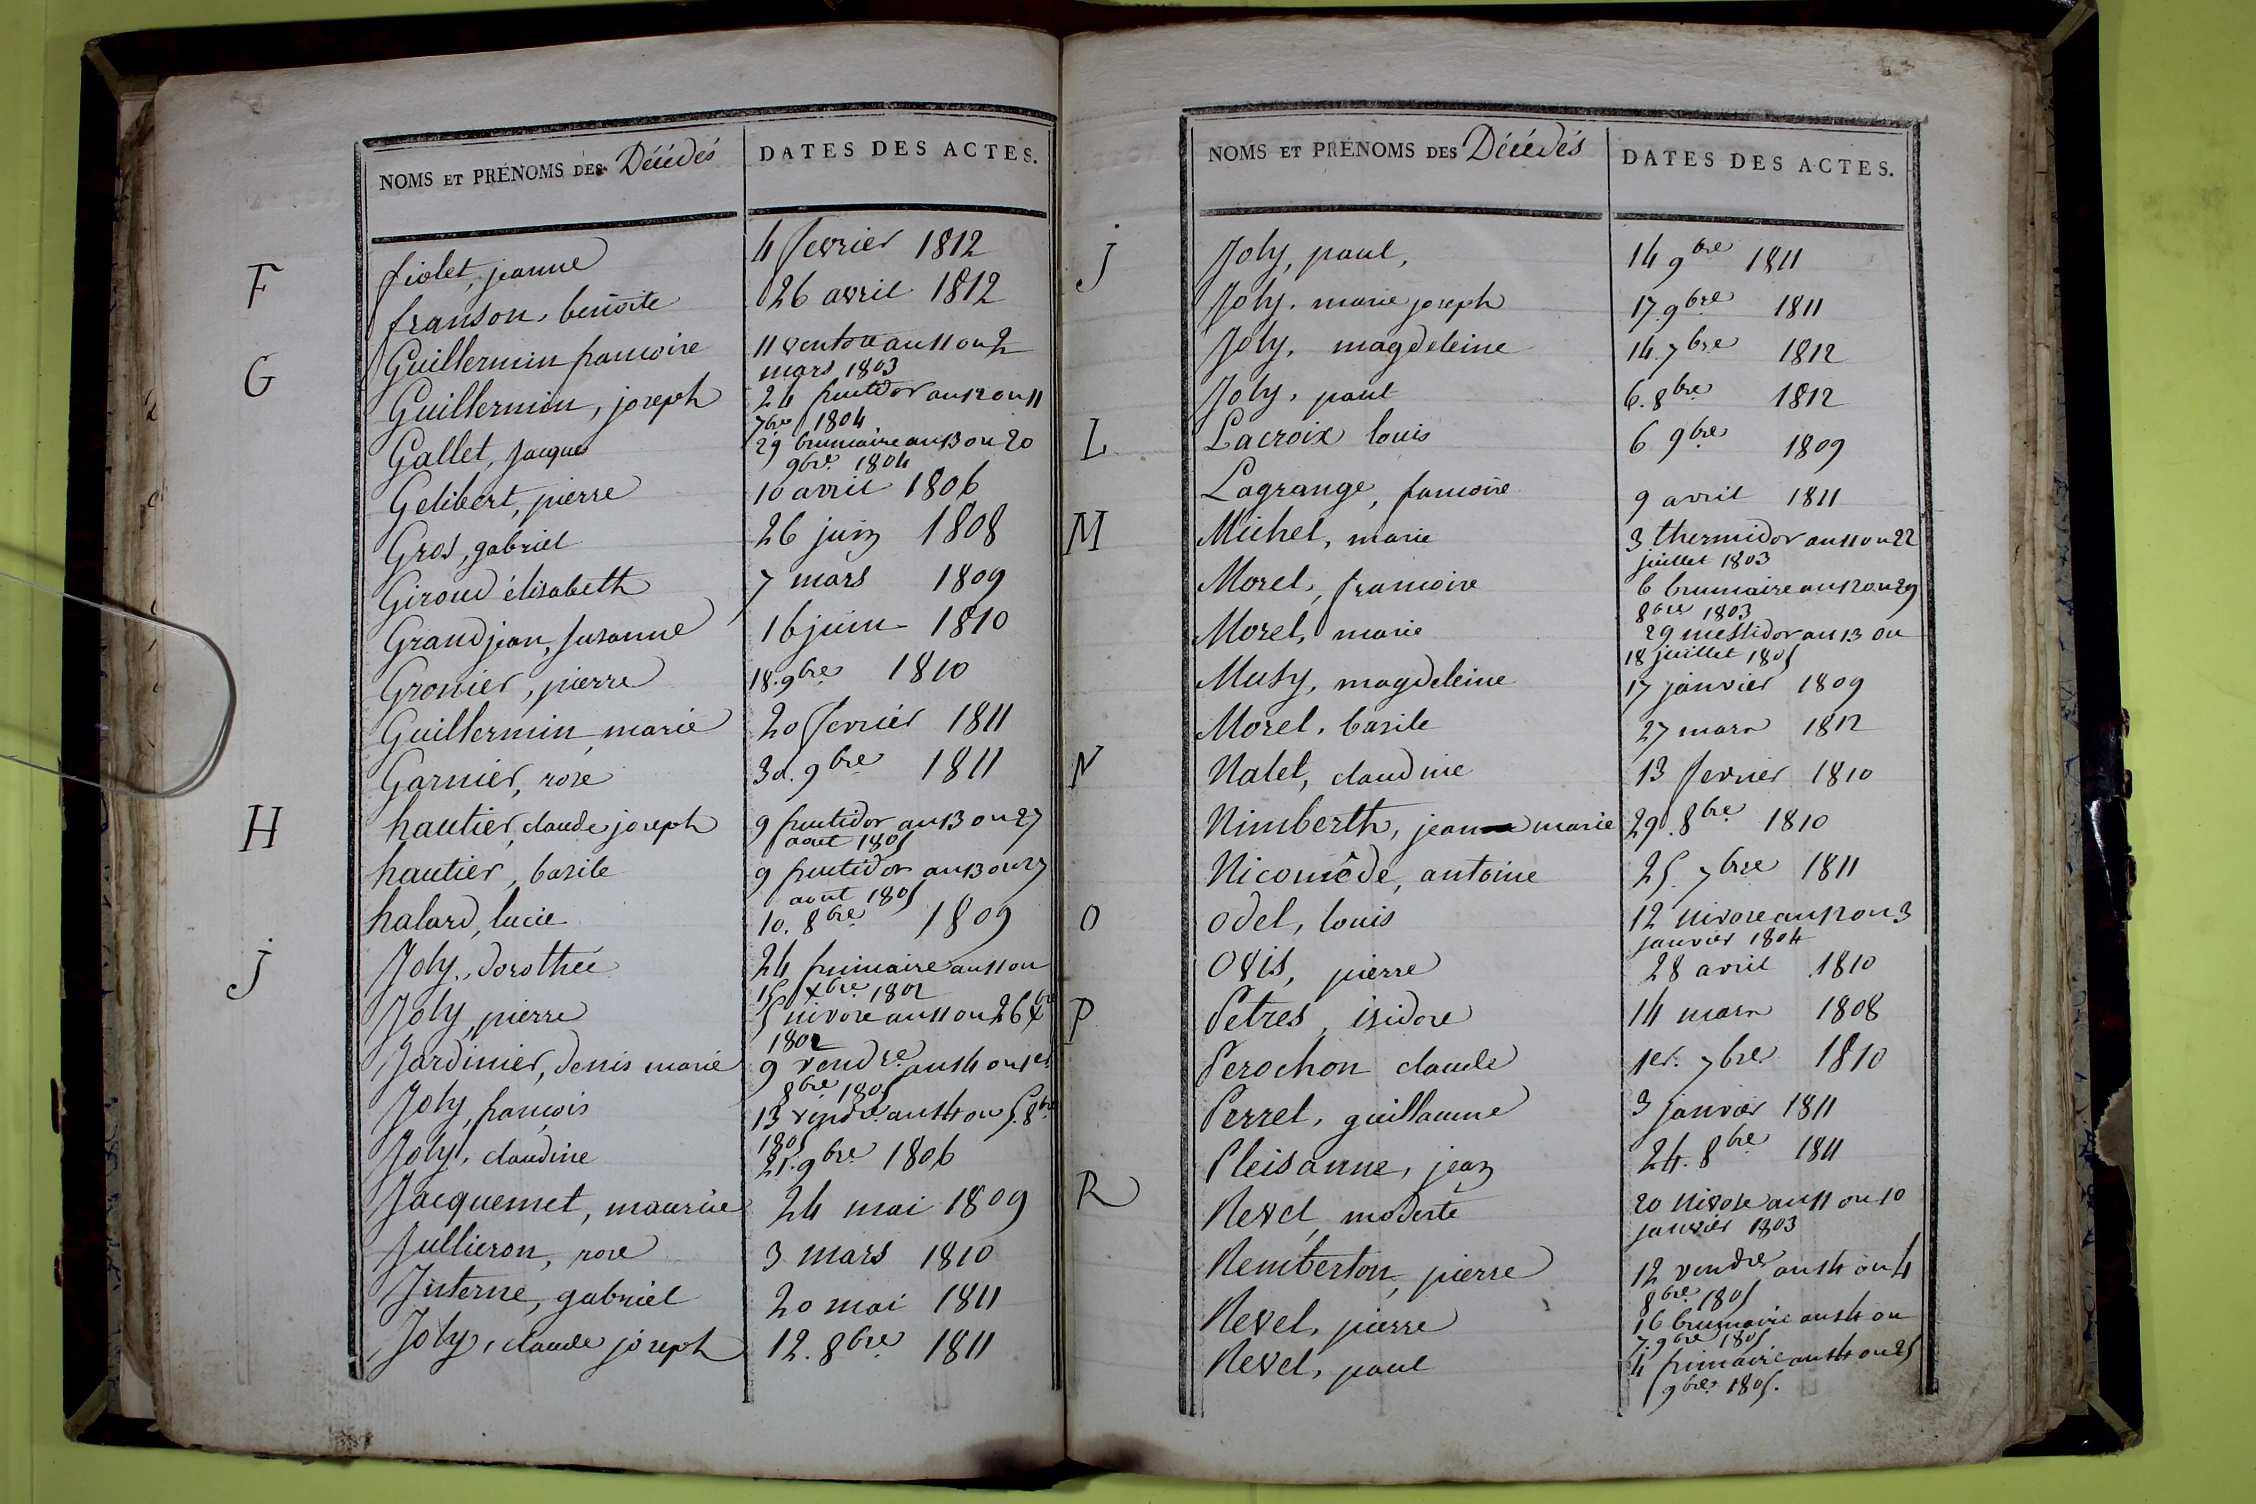 NOMS ET PRÉNOMS DES Décédés
DATES DES ACTES.
F
fiolet, jeanne 4 fevrier 1812
franson, benoite 26 avril 1812
G
Guillermin francoise 11 ventose an 11 ou 2
mars 1803
Guillermin, joseph 24 fructidor an 12 ou 11
7bre 1804
Gallet, jacques 29 brumaire an 13 ou 20
9bre 1804
Gelibert, pierre 10 avril 1806
Gros, gabriel 26 juin 1808
Giroud élisabeth 7 mars 1809
Grandjean, susanne 16 juin 1810
Gronier, pierre 18. 9bre 1810
Guillermin, marie 20 fevrier 1811
Garnier, rose 30. 9bre 1811
H
hautier, claude joseph 9 fructidor an 13 ou 27
aout 1805
hautier, basile 9 fructidor an 13 ou 27
aout 1805
halard, lucie 10. 8bre 1809
J
Joly, dorothée 24 frimaire an 11 ou
15 Xbre 1802
Joly, pierre 5 nivose an 11 ou 26 Xbre
1802
Jardinier, denis marie 9 vendre an 14 ou 1er
8bre 1805
Joly, francois 13 vendre an 14 ou 5. 8bre
1805
Joly, claudine 21. 9bre 1806
Jacquemet, maurice 24 mai 1809
Jullieron, rose 3 mars 1810
Interne, gabriel 20 mai 1811
Joly, claude joseph 12. 8bre 1811
NOMS ET PRÉNOMS DES Décédés
DATES DES ACTES.
J
Joly, paul, 14 9bre 1811
Joly, marie joseph 17. 9bre 1811
Joly, magdeleine 14. 7bre 1812
Joly, paul 6. 8bre 1812
L
Lacroix louis 6 9bre 1809
Lagrange, francoise 9 avril 1811
M
Michel, marie 3 thermidor an 11 ou 22
juillet 1803
Morel, francoise 6 brumaire an 12 ou 29
8bre 1803
Morel, marie 29 messidor an 13 ou
18 juillet 1805
Musy, magdeleine 17 janvier 1809
Morel, basile 27 mars 1812
N
Nalet, claudine 13 fevrier 1810
Nimberth, jean marie 29. 8bre 1810
Nicomêde, antoine 25. 7bre 1811
O
Odel, louis 12 nivose an 12 ou 3
janvier 1804
Ovis, pierre 28 avril 1810
P
Petres, isidore 14 mars 1808
Perochon claude 1er. 7bre 1810
Perret, guillaume 3 janvier 1811
Pleisanne, jean 24. 8bre 1811
R
Revel modeste 20 nivose an 11 ou 10
janvier 1803
Remberton, pierre 12 vendre an 14 ou 4
8bre 1805
Revel, pierre 16 brumaire an 14 ou
7. 9bre 1805
Revel, paul 4 frimaire an 14 ou 25
9bre 1805.